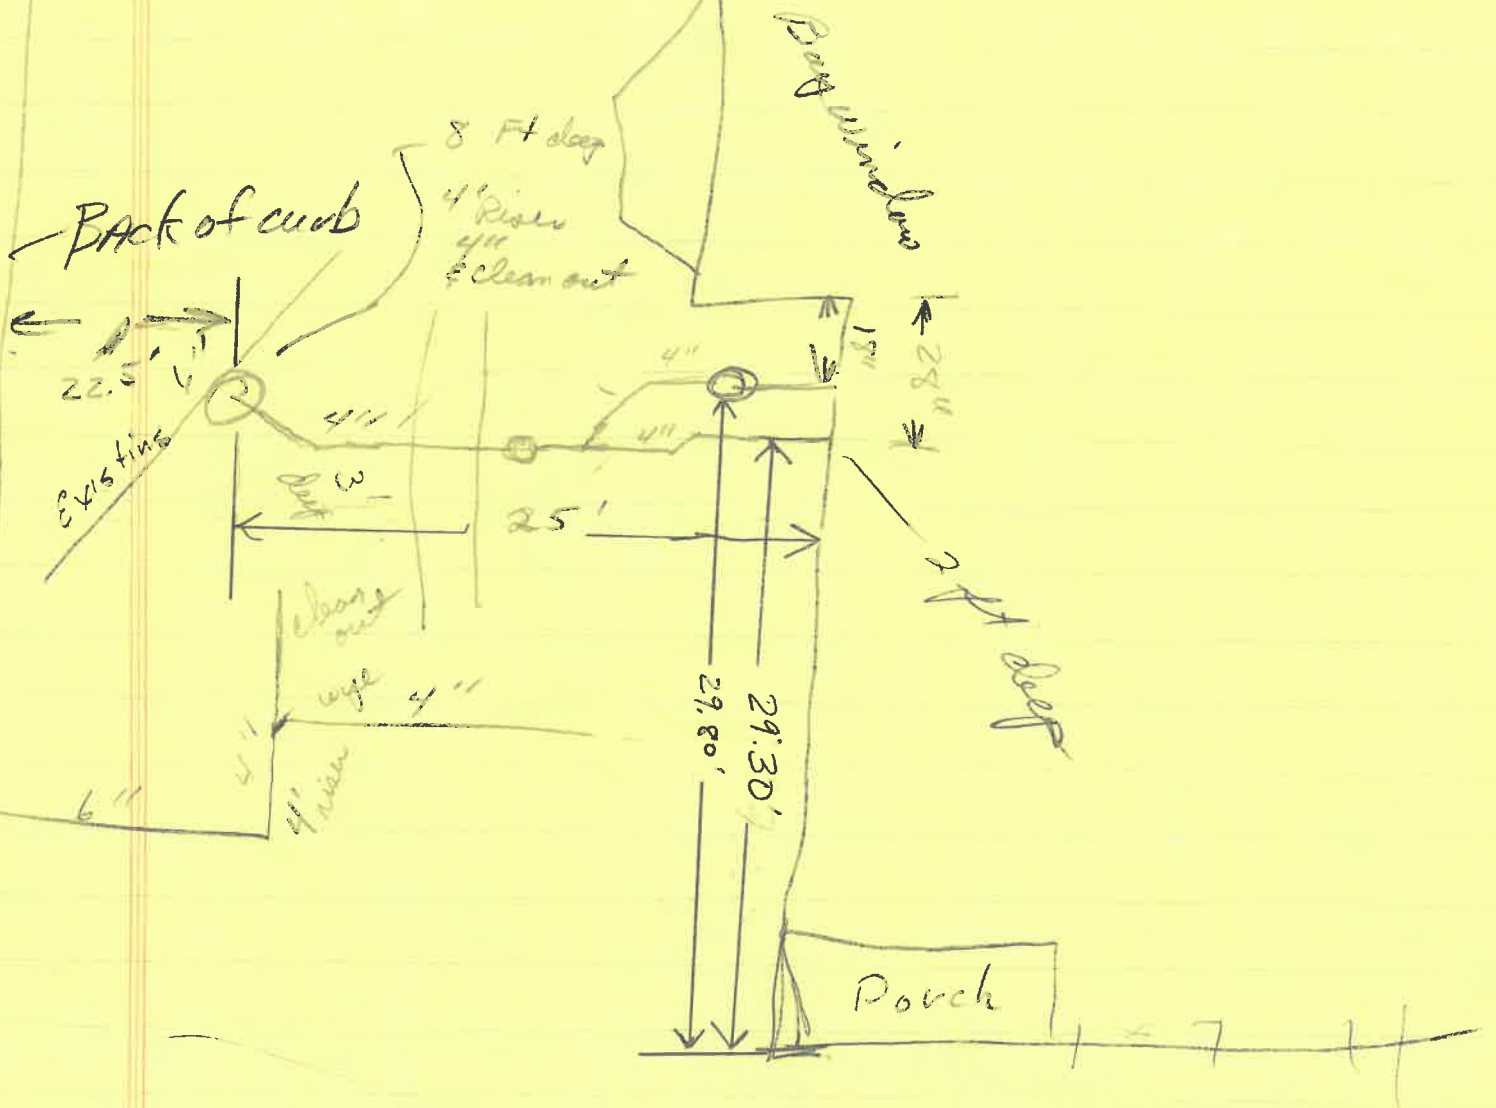 Bay window
8 Ft deep
4' Riser
4"
& clean out
Back of curb
22.5'
4"
Existing
4"
4"
4"
18"
28"
3'
deep
25'
2 ft deep
clean
out
wye
4"
4"
4'
riser
6"
29.80'
29.30'
Porch